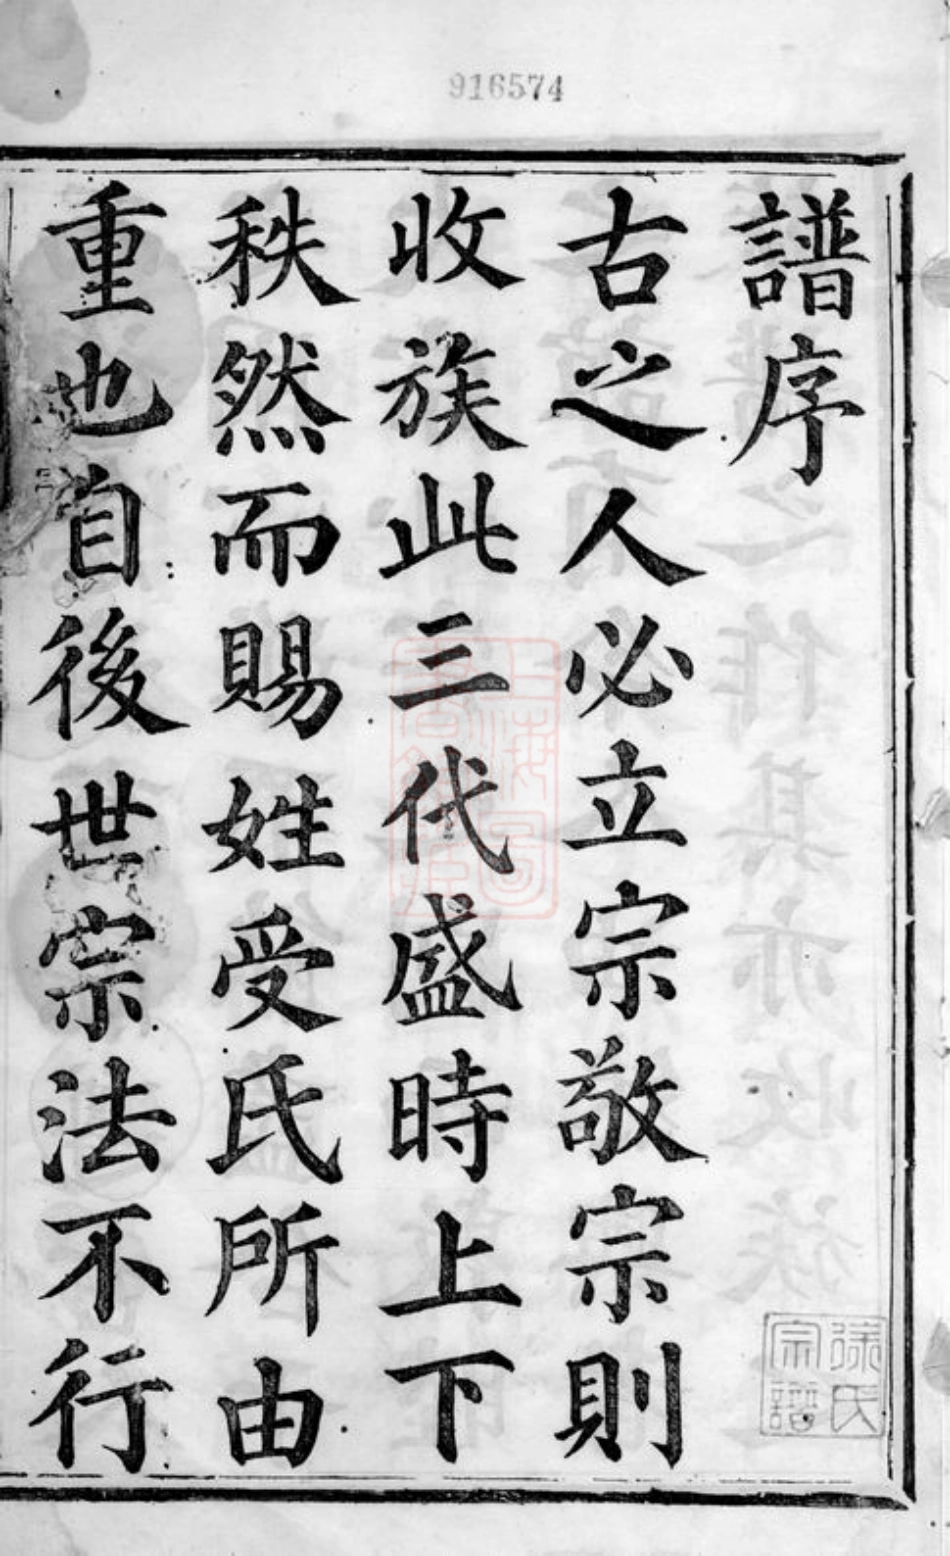 916574
譜序
古之人必立宗敬宗則
收族此三代盛時上下
秩然而賜姓受氏所由
重也自後世宗法不行
徐氏
宗譜